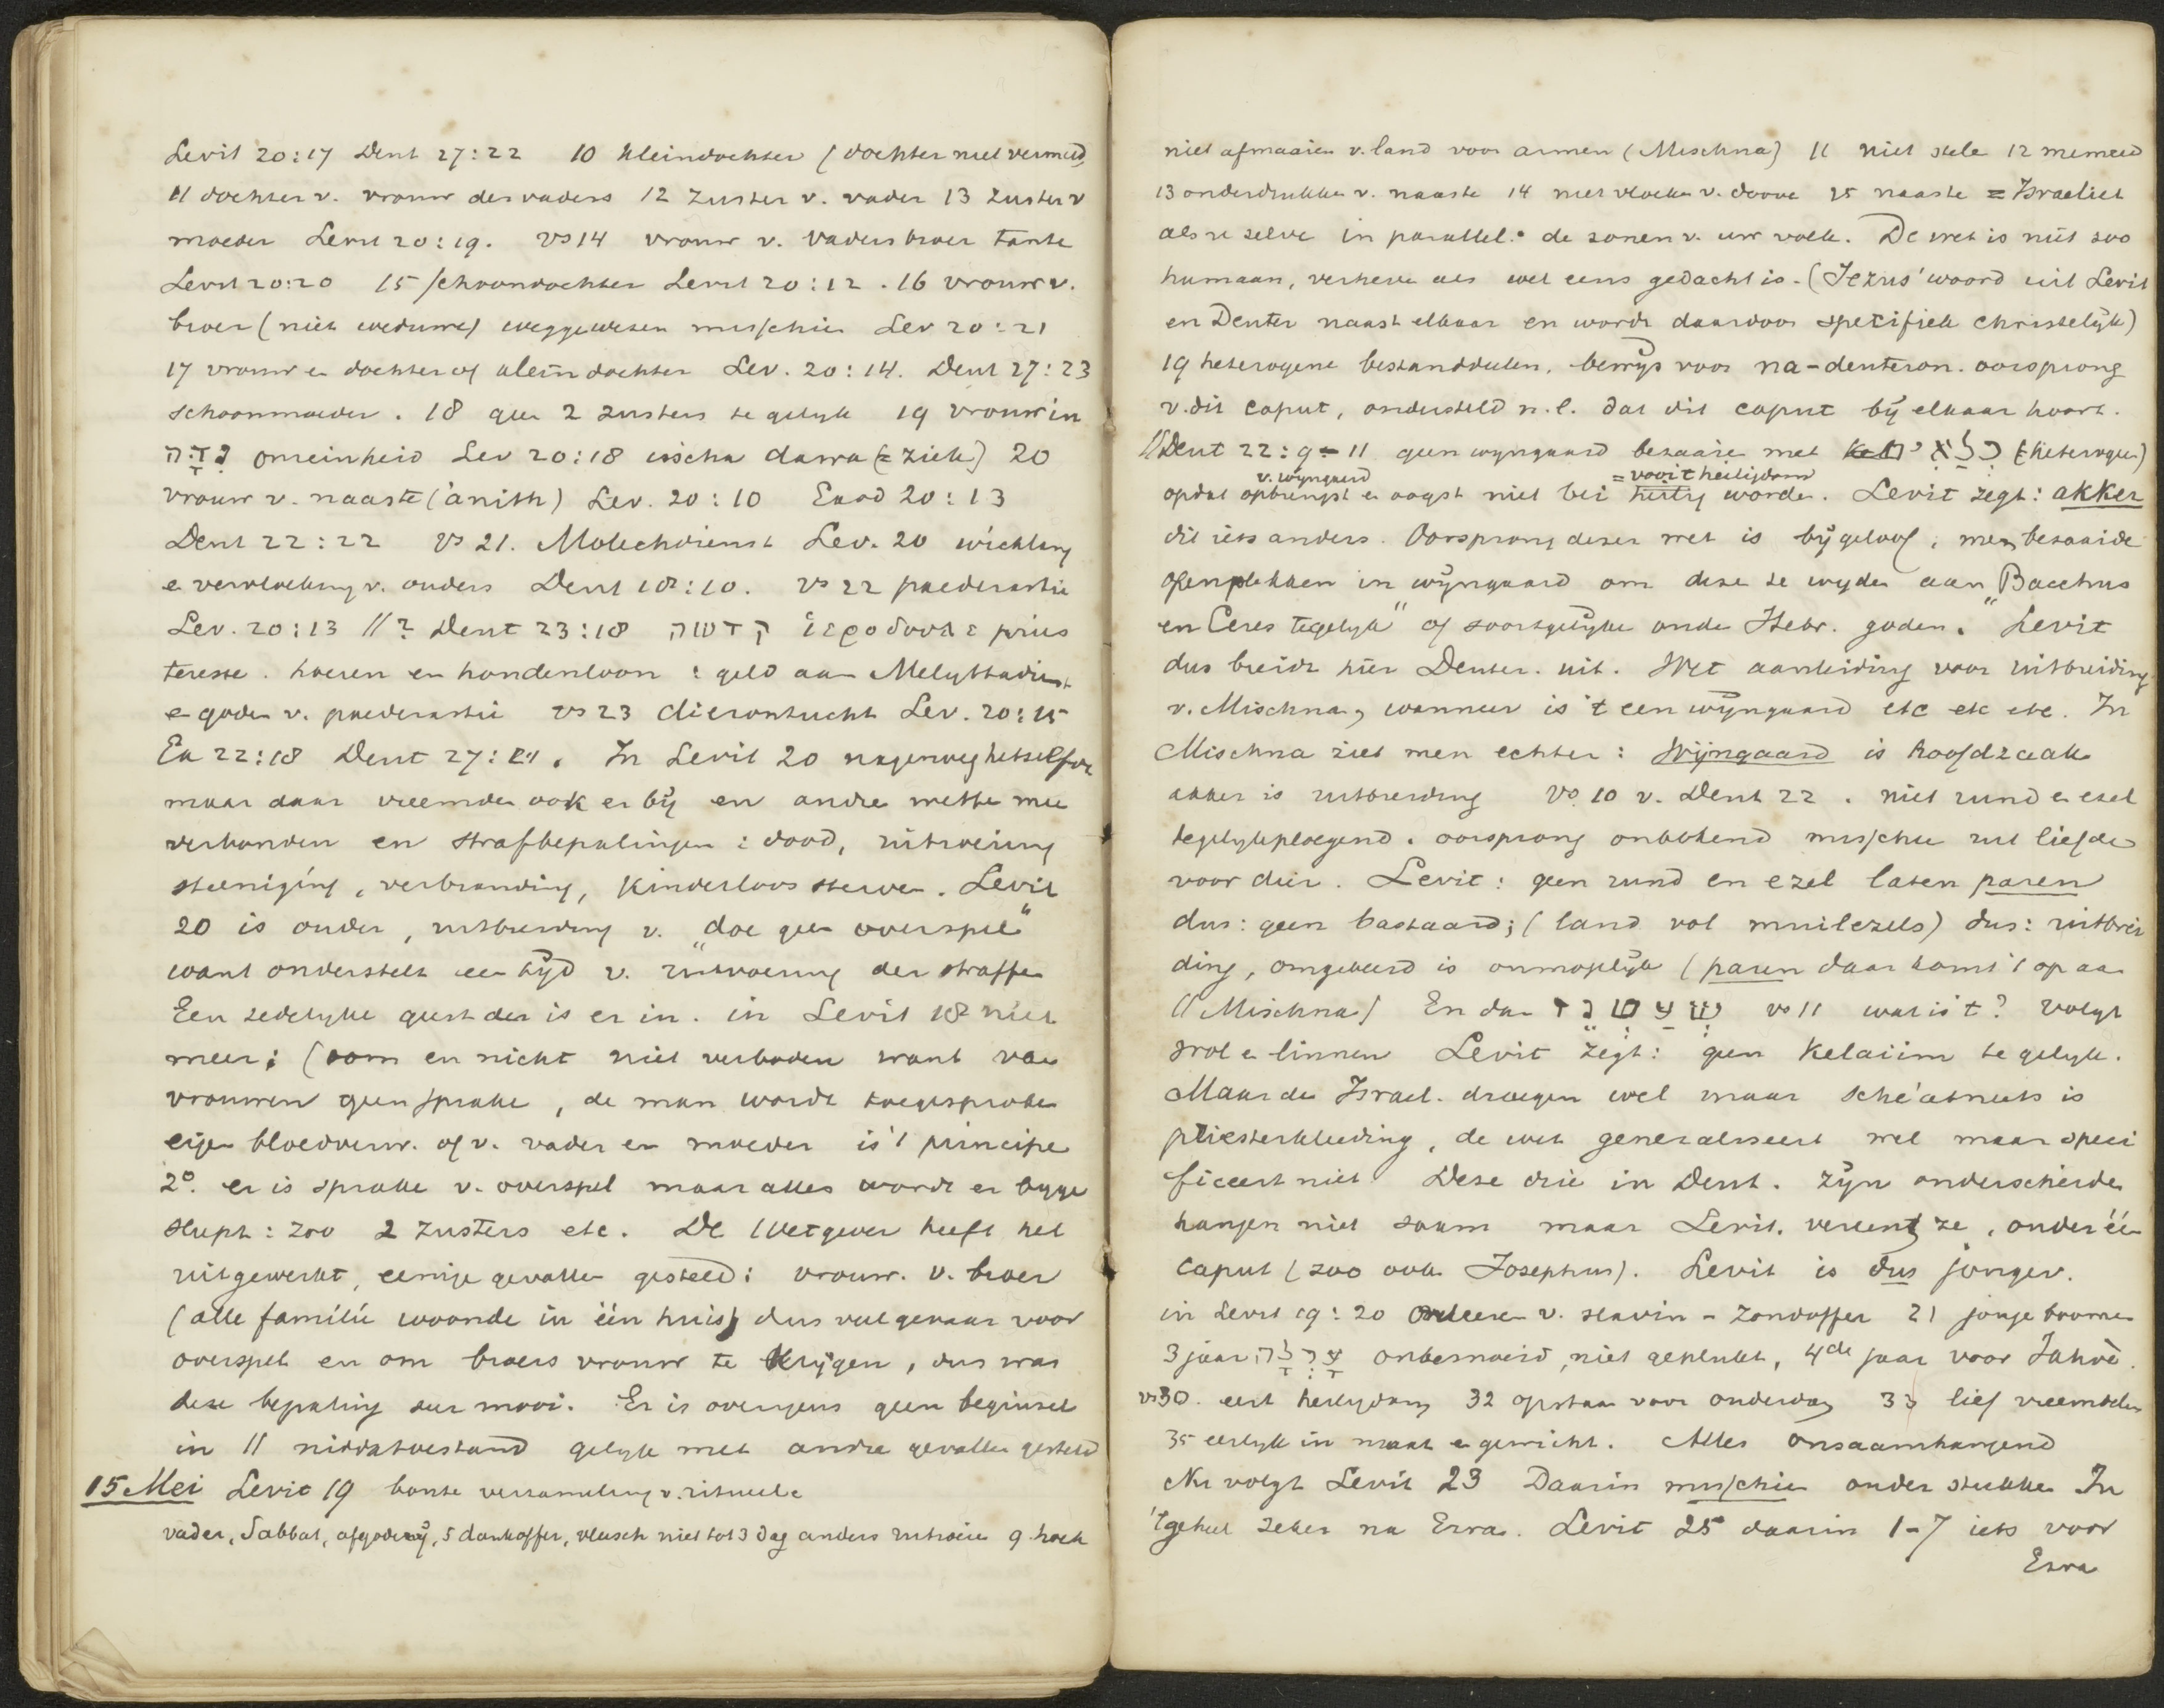 Levit 20:17 Deut 27:22 10 kleindochter (dochter niet vermeld)
11 dochter v. vrouw des vaders 12 zuster v. vader 13 zuster v
moeder Levit 20:19. vs 14 vrouw v. vaders broer tante
Levit 20:20 15 schoondochter Levit 20:12. 16 vrouw v.
broer (niet weduwe) weggewesen misschien Lev 20:21
17 vrouw en dochter of kleindochter Lev. 20:14. Deut 27:23
schoonmoeder. 18 geen 2 zusters te gelijk 19 vrouw in
נִדָּה onreinheid Lev 20:18 ischa dawa (= ziek) 20
vrouw v. naaste ('anith) Lev. 20:10 Exod 20:13
Deut 22:22 vs 21. Molechdienst Lev. 20 wichlary
e vervloeking v. ouders Deut 18:10. vs 22 paederastie
Lev. 20:13 // ? Deut 23:18 קדשה ἱεροδουλε pries
teresse. hoeren en hondenloon : geld aan Melyttadienst
e goden v. paederastie vs 23 dierontucht Lev. 20:15
Ex 22:18 Deut 27:21. In Levit 20 nagenoeg hetzelfde
maar daar vreemde ook er bij en andre wette mee
verbonden en strafbepalingen : dood, uitroeiing
steeniging, verbranding, kinderloos sterven. Levit
20 is ouder, uitbreiding v. „doe geen overspel"
want onderstelt een tijd v. uitvoering der straffen
Een zedelijke geest der is er in. in Levit 18 niet
meer; (oom en nicht niet verboden want van
vrouwen geen sprake, de man wordt toegesproken
eigen bloedverw. of v. vader en moeder is 't principe
2°. er is sprake v. overspel maar alles wordt er bijge
sleept: zoo 2 zusters etc. De Wetgever heeft het
uitgewerkt, eenige gevallen gesteld: vrouw. v. broer
(alle familie woonde in één huis) dus veel gevaar voor
overspel en om broers vrouw te krijgen, dus was
deze bepaling zeer mooi. Er is overigens geen beginsel
in // niddatoestand gelijk met andre gevallen gesteld
15 Mei Levit 19 bonte verzameling v. rituele
vader, Sabbat, afgoderij, 5 dankoffer, vleesch niet tot 3 dag anders uitroeien 9 hoek
niet afmaaien v. land voor armen (Mischna) 11 niet stele 12 meineed
13 onderdrukken v. naaste 14 niet vloeken v. doove 15 naaste = Israeliet
als u zelve in parallel. de zonen v. uw volk. De wet is niet zoo
humaan, verheven als wel eens gedacht is. (Jezus' woord uit Levit
en Deuter naast elkaar en wordt daardoor specifiek christelijk)
19 heterogene bestanddeelen. bewijs voor na-deuteron. oorsprong
v. dit caput, ondersteld n.l. dat dit caput bij elkaar hoort.
// Deut 22:9-11 geen wijngaard bezaaien met כלאים (heterogeen)
v. wijngaard = vooit heiligdom
opdat opbrengst e oogst niet bei heilig worde. Levit zegt: akker
dit iets anders. Oorsprong dezer wet is bijgeloof, men bezaaide
open plekken in wijngaard om deze te wijden aan „Bacchus
en Ceres tegelijk" of soortgelijke oude Hebr. goden. Levit
dus breidt hier Deuter. uit. Wet aanleiding voor uitbreiding
v. Mischna, wanneer is 't een wijngaard etc etc etc. In
Mischna ziet men echter : Wijngaard is hoofdzaak
akker is uitbreiding vs 10 v. Deut 22. niet rund e ezel
tegelijk ploegend. oorsprong onbekend misschien uit liefde
voor dier. Levit: geen rund en ezel laten paren
dus: geen bastaard; (land vol muilezels) dus: uitbrei
ding, omgekeerd is onmogelijk (paren daar komt 't op aan
(Mischna) En dan שעטנז vs 11 wat is 't? volgt
wol e linnen Levit zegt: geen Kelaiim te gelijk.
Maar de Israel. droegen wel maar sche'atneets is
priesterkleeding, de wet generaliseert wel maar speci
ficeert niet Deze drie in Deut. zijn onderscheiden
hangen niet saam maar Levit. vereent ze, onder één
caput (zoo ook Josephus). Levit is dus jonger.
in Levit 19:20 v. slavin - zondoffer 21 jonge boomen
3 jaar ערלה onbesnoeid, niet geplukt, 4de jaar voor Jahvè.
vs 30. eert heiligdom 32 opstaan voor ouderdom 33 lief vreemdeling
35 eerlijk in maat e gewicht. Alles onsaamhangend
Nu volgt Levit 23 Daarin misschien ouder stukken In
't geheel zeker na Ezra. Levit 25 daarin 1-7 iets voor
Esra